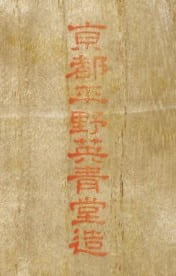 京都平野英青堂造